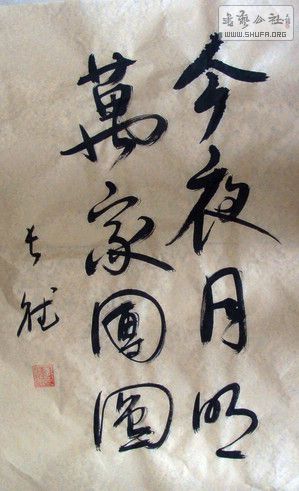 今夜月明
萬家團圓
書藝公社
WWW.SHUFA.ORG